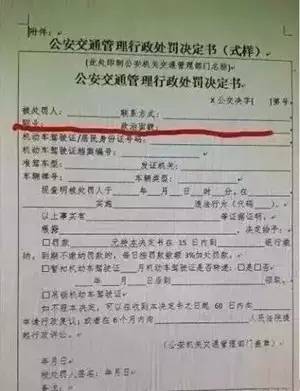 附件:
公安交通管理行政处罚决定书(式样)
(此处印制公安机关交通管理部门名称)
公安交通管理行政处罚决定书
×公交决字[ ]第号
被处罚人: 联系方式:
职务: 政治面貌:
机动车驾驶证/居民身份证号码:
机动车驾驶证档案编号:
准驾车型: 发证机关:
车辆牌号: 车辆类型:
现查明被处罚人于 年 月 日 时 分,在
实施 违法行为(代码 )。
以上事实有 等证据证明。
根据 决定给予:
□罚款 元持本决定书在15日内到 银行缴
纳。到期不缴纳罚款的,每日按罚款数额3%加处罚款。
□暂扣机动车驾驶证 月机动车驾驶证是否转递:□是□否
年 月 日后到 领取。
□吊销机动车驾驶证
如不服本决定,可以在收到本决定书之日起60日内向
申请行政复议;或者在6个月内向 人民法院提
起行政诉讼。
(公安机关交通管理部门盖章)
年月日
被处罚人签名: 年月日
备注: